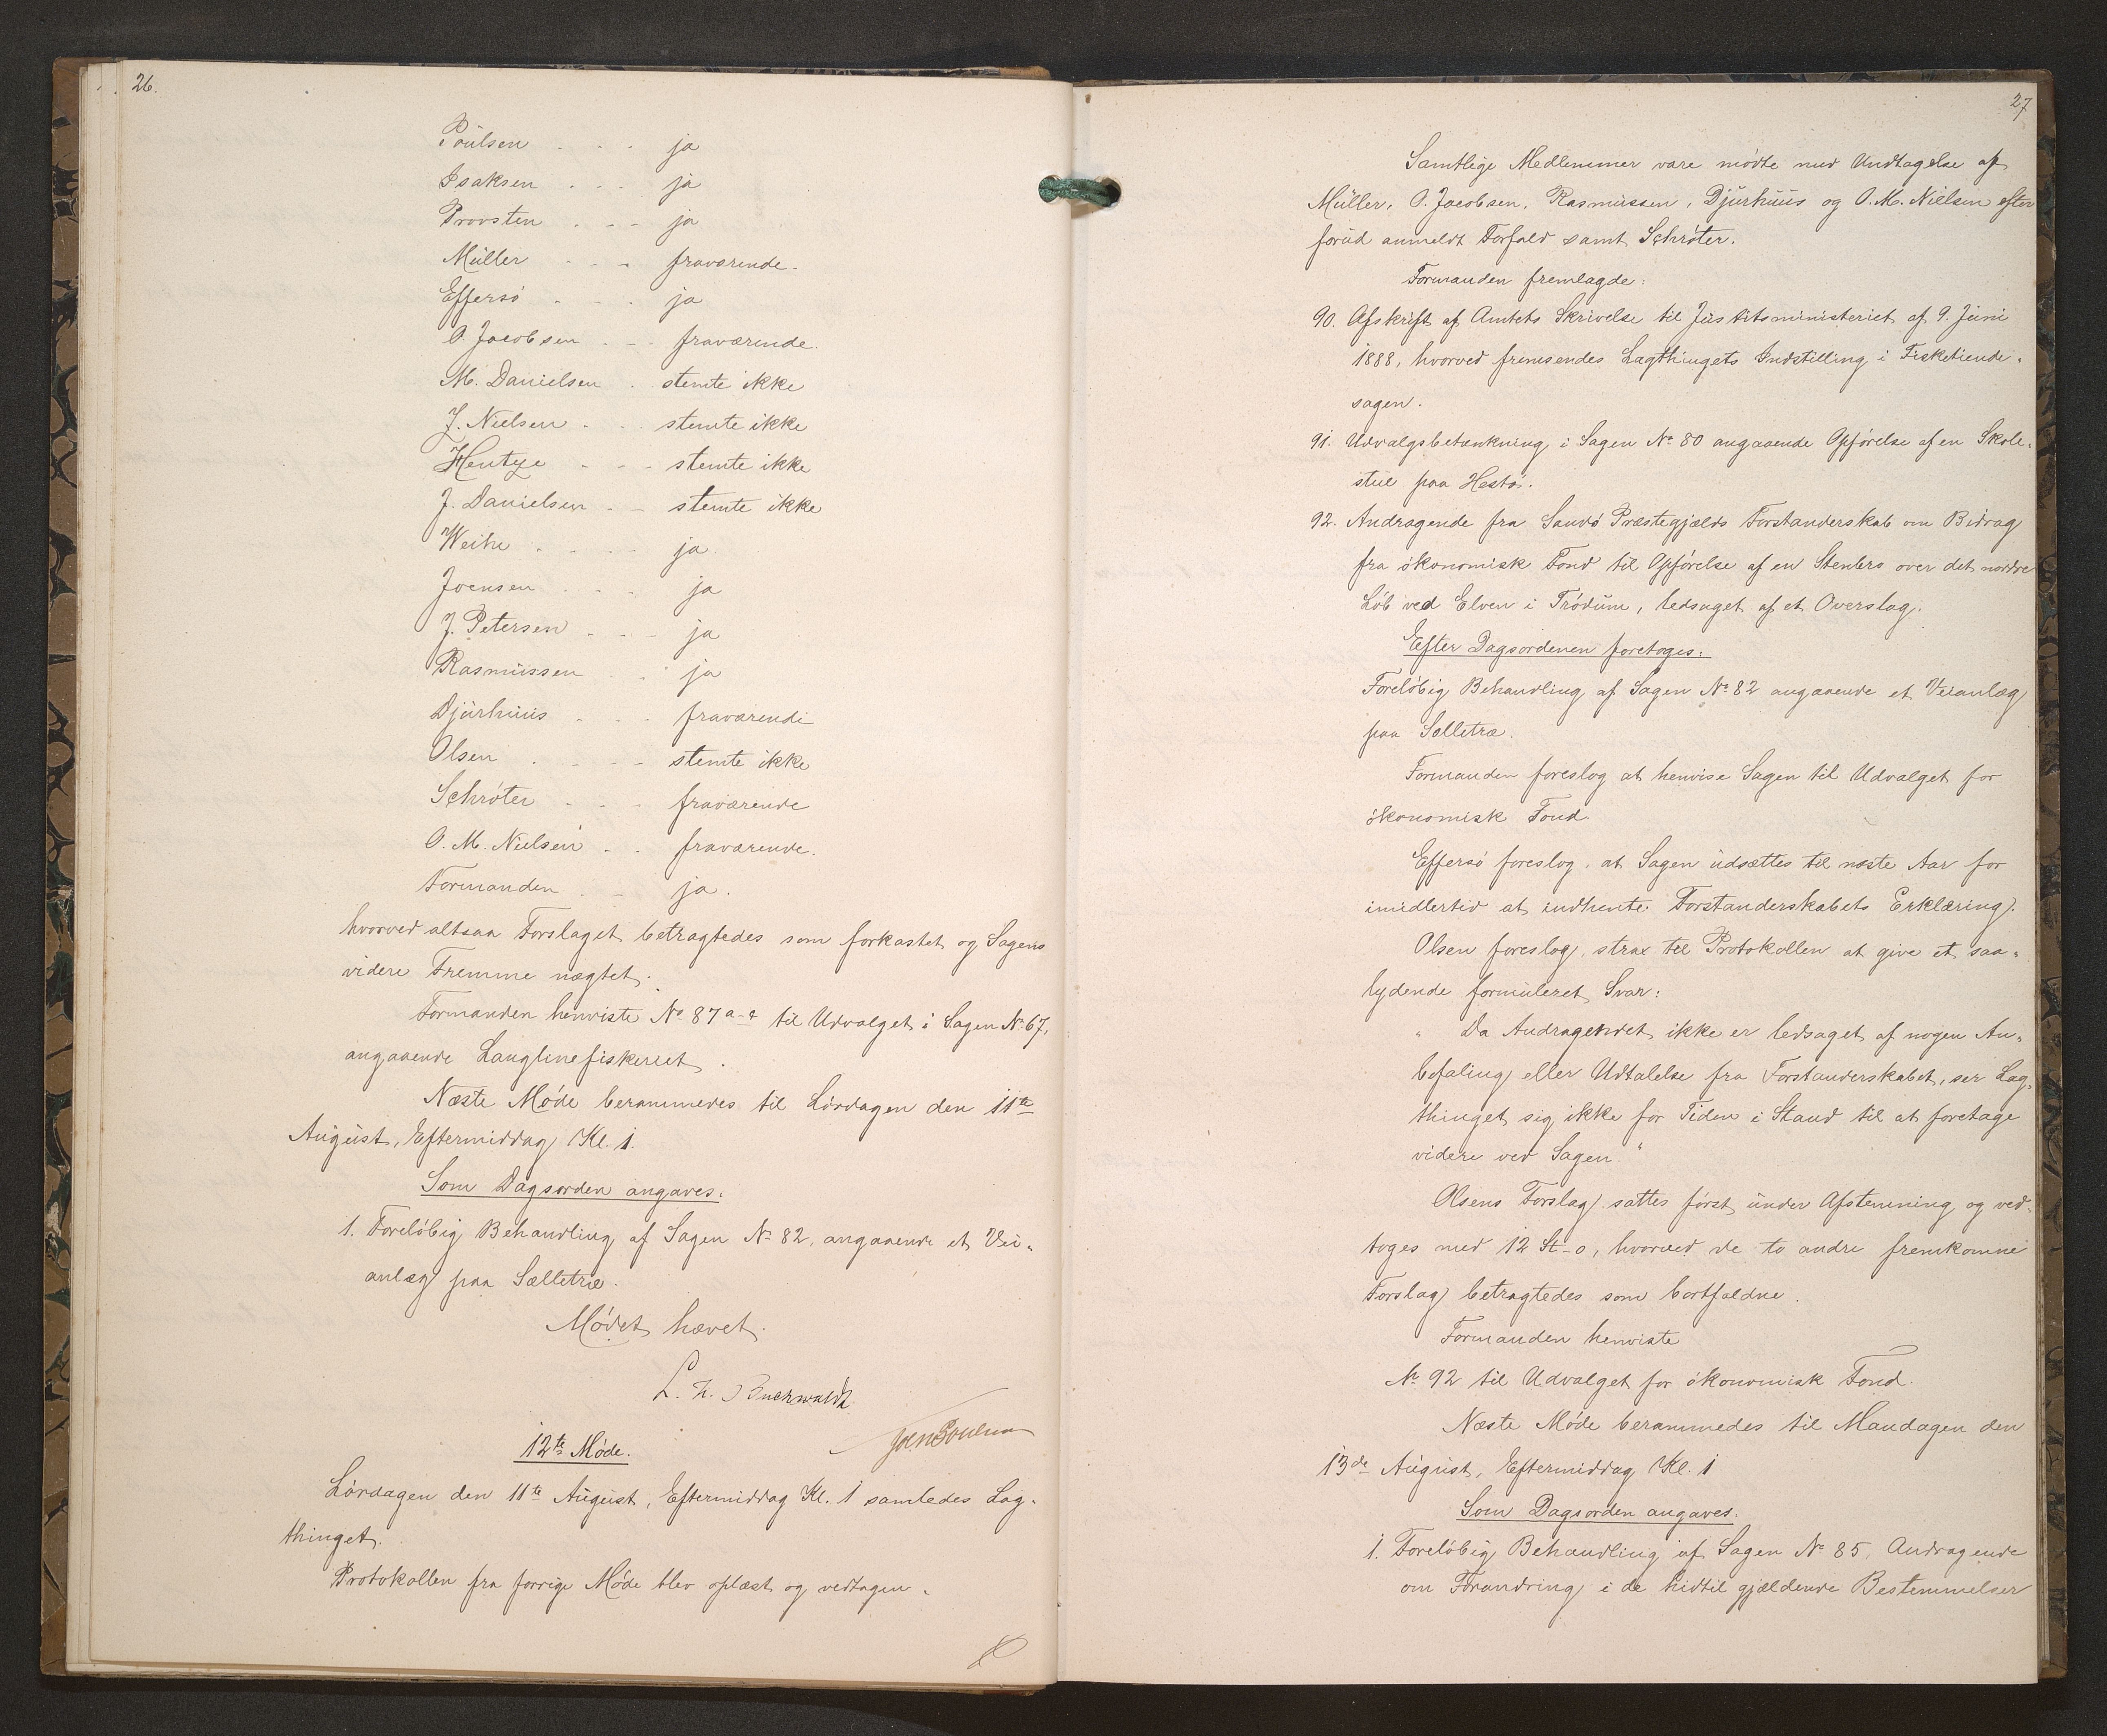 26.
Poulsen - - - ja
Isaksen - - - ja
Provsten - - - ja
Müller - - - fraværende.
Effersö - - - ja
O. Jacobsen - - fraværende.
M. Danielsen - stemte ikke
J. Nielsen - - stemte ikke
Hentze - - - stemte ikke
J. Danielsen - - stemte ikke
Weihe - - - - ja.
Joensen - - - ja
J. Petersen - - - ja
Rasmussen - - ja
Djurhuus - - - fraværende
Olsen - - - - stemte ikke
Schröter - - - fraværende
O. M. Nielsen - - fraværende.
Formanden - - ja.
hvorved altsaa Forslaget betragtedes som forkastet og Sagens
videre Fremme nægtet.
Formanden henviste No 87 a-e til Udvalget i Sagen No 67,
angaaende Langlinefiskeriet.
Næste Møde berammedes til Lørdagen den 11te
August, Eftermiddag Kl. 1.
Som Dagsorden angaves:
1. Foreløbig Behandling af Sagen No 82, angaaende et Vei-
anlæg paa Sælletræ.
Mødet hævet.
L. Z. Buchwaldt
Joen Poulsen
12te Møde.
Lørdagen den 11te August, Eftermiddag Kl. 1 samledes Lag-
thinget.
Protokollen fra forrige Møde blev oplæst og vedtagen.
27
Samtlige Medlemmer vare mødte med Undtagelse af
Müller, O. Jacobsen, Rasmussen, Djurhuus og O. M. Nielsen efter
forud anmeldt Forfald samt Schrøter.
Formanden fremlagde:
90. Afskrift af Amtets Skrivelse til Justitsministeriet af 9. Juni
1888, hvorved fremsendes Lagthingets Indstilling i Fisketiende-
sagen.
91. Udvalgsbetænkning i Sagen No 80 angaaende Opførelse af en Skole-
stue paa Hestø.
92. Andragende fra Sandø Præstegjælds Forstanderskab om Bidrag
fra økonomisk Fond til Opførelse af en Stenbro over det nordre
Løb ved Elven i Trødum, ledsaget af et Overslag.
Efter Dagsordenen foretoges:
Foreløbig Behandling af Sagen No 82 angaaende et Veianlæg
paa Sælletræ.
Formanden foreslog at henvise Sagen til Udvalget for
økonomisk Fond.
Effersø foreslog, at Sagen udsættes til næste Aar for
imidlertid at indhente Forstanderskabets Erklæring.
Olsen foreslog, strax til Protokollen at give et saa-
lydende formuleret Svar:
" Da Andragendet ikke er ledsaget af nogen An-
befaling eller Udtalelse fra Forstanderskabet, ser Lag-
thinget sig ikke for Tiden i Stand til at foretage
videre ved Sagen."
Olsens Forslag sattes først under Afstemning og ved-
toges med 12 St-0, hvorved de to andre fremkomne
Forslag betragtedes som bortfaldne.
Formanden henviste
No 92 til Udvalget for økonomisk Fond.
Næste Møde berammedes til Mandagen den
13de August, Eftermiddag Kl. 1
Som Dagsorden angaves:
1. Foreløbig Behandling af Sagen No 85, Andragende
om Forandring i de hidtil gjældende Bestemmelser